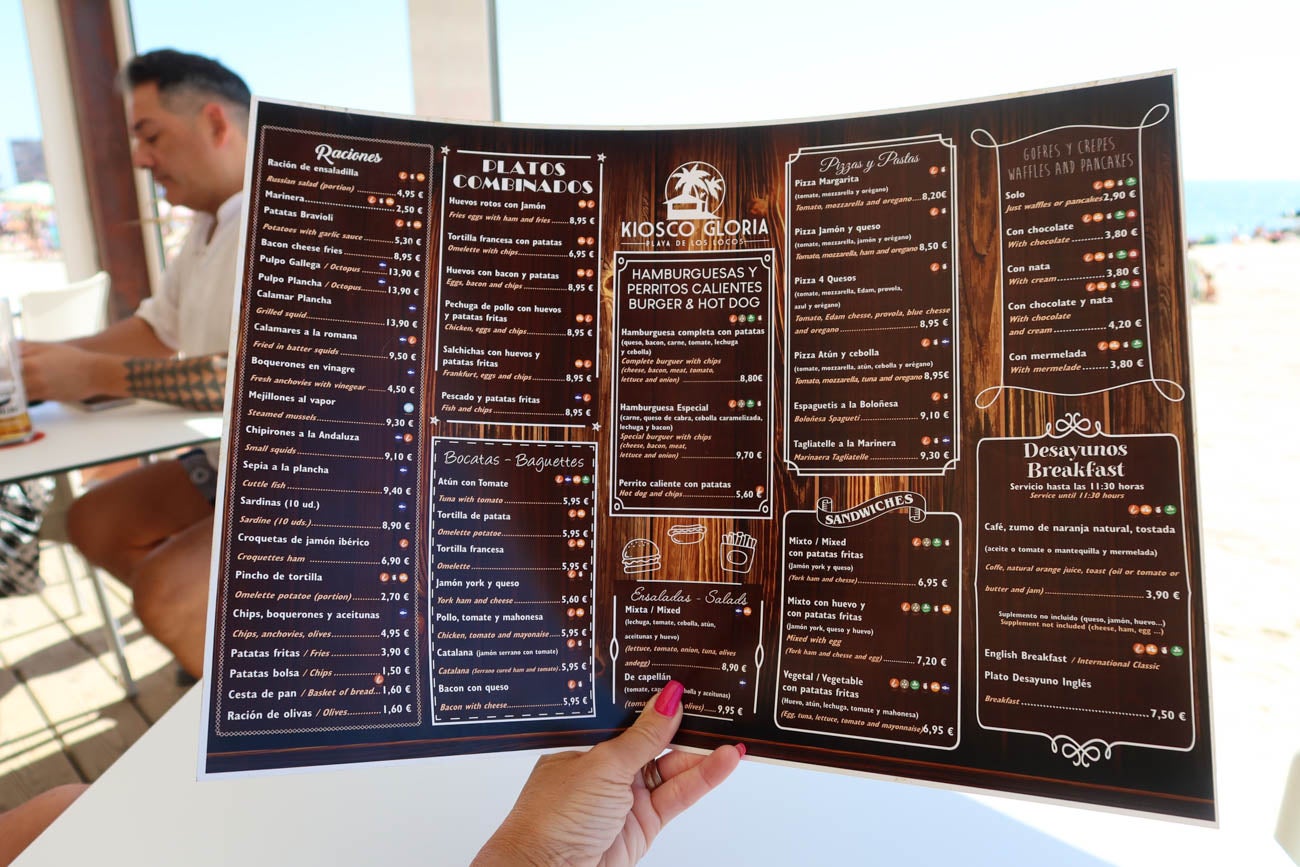 Raciones
Ración de ensaladilla
Russian salad (portion) 4,95 €
Marinera 2,50 €
Patatas Bravioli
Potatoes with garlic sauce 5,30 €
Bacon cheese fries 8,95 €
Pulpo Gallega / Octopus 13,90 €
Pulpo Plancha / Octopus 13,90 €
Calamar Plancha
Grilled squid 13,90 €
Calamares a la romana
Fried in batter squids 9,50 €
Boquerones en vinagre
Fresh anchovies with vinegar 4,50 €
Mejillones al vapor
Steamed mussels 9,30 €
Chipirones a la Andaluza
Small squids 9,10 €
Sepia a la plancha
Cuttle fish 9,40 €
Sardinas (10 ud.)
Sardine (10 uds.) 8,90 €
Croquetas de jamón ibérico
Croquettes ham 6,90 €
Pincho de tortilla
Omelette potatoe (portion) 2,70 €
Chips, boquerones y aceitunas
Chips, anchovies, olives 4,95 €
Patatas fritas / Fries 3,90 €
Patatas bolsa / Chips 1,50 €
Cesta de pan / Basket of bread 1,60 €
Ración de olivas / Olives 1,60 €
PLATOS
COMBINADOS
Huevos rotos con Jamón
Fries eggs with ham and fries 8,95 €
Tortilla francesa con patatas
Omelette with chips 6,95 €
Huevos con bacon y patatas
Eggs, bacon and chips 8,95 €
Pechuga de pollo con huevos
y patatas fritas
Chicken, eggs and chips 8,95 €
Salchichas con huevos y
patatas fritas
Frankfurt, eggs and chips 8,95 €
Pescado y patatas fritas
Fish and chips 8,95 €
Bocatas - Baguettes
Atún con Tomate
Tuna with tomato 5,95 €
Tortilla de patata
Omelette potatoe 5,95 €
Tortilla francesa
Omelette 5,95 €
Jamón york y queso
York ham and cheese 5,60 €
Pollo, tomate y mahonesa
Chicken, tomato and mayonaise 5,95 €
Catalana (jamón serrano con tomate)
Catalana (Serrano cured ham and tomato) 5,95 €
Bacon con queso
Bacon with cheese 5,95 €
KIOSCO GLORIA
PLAYA DE LOS LOCOS
HAMBURGUESAS Y
PERRITOS CALIENTES
BURGER & HOT DOG
Hamburguesa completa con patatas
(queso, bacon, carne, tomate, lechuga
y cebolla)
Complete burguer with chips
(cheese, bacon, meat, tomato,
lettuce and onion) 8,80€
Hamburguesa Especial
(carne, queso de cabra, cebolla caramelizada,
lechuga y bacon)
Special burguer with chips
(cheese, bacon, meat,
lettuce and onion) 9,70 €
Perrito caliente con patatas
Hot dog and chips 5,60 €
Ensaladas - Salads
Mixta / Mixed
(lechuga, tomate, cebolla, atún,
aceitunas y huevo)
(lettuce, tomato, onion, tuna, olives
andegg) 8,90 €
De capellán
(tomate, bolla y aceitunas)
olives) 9,95 €
Pizzas y Pastas
Pizza Margarita
(tomate, mozzarella y orégano)
Tomato, mozzarella and oregano 8,20€
Pizza Jamón y queso
(tomate, mozzarella, jamón y orégano)
Tomato, mozzarella, ham and oregano 8,50 €
Pizza 4 Quesos
(tomate, mozzarella, Edam, provola,
azul y orégano)
Tomato, Edam chesse, provola, blue chesse
and oregano 8,95 €
Pizza Atún y cebolla
(tomate, mozzarella, atún, cebolla y orégano)
Tomato, mozzarella, tuna and oregano 8,95€
Espaguetis a la Boloñesa
Boloñesa Spagueti 9,10 €
Tagliatelle a la Marinera
Marinaera Tagliatelle 9,30 €
SANDWICHES
Mixto / Mixed
con patatas fritas
(Jamón york y queso)
(York ham and chesse) 6,95 €
Mixto con huevo y
con patatas fritas
(Jamón york, queso y huevo)
Mixed with egg
(York ham and cheese and egg) 7,20 €
Vegetal / Vegetable
con patatas fritas
(Huevo, atún, lechuga, tomate y mahonesa)
(Egg, tuna, lettuce, tomato and mayonnaise) 6,95 €
GOFRES Y CREPES
WAFFLES AND PANCAKES
Solo
Just waffles or pancakes 2,90 €
Con chocolate
With chocolate 3,80 €
Con nata
With cream 3,80 €
Con chocolate y nata
With chocolate
and cream 4,20 €
Con mermelada
With mermelade 3,80 €
Desayunos
Breakfast
Servicio hasta las 11:30 horas
Service until 11:30 hours
Café, zumo de naranja natural, tostada
(aceite o tomate o mantequilla y mermelada)
Coffe, natural orange juice, toast (oil or tomato or
butter and jam) 3,90 €
Suplemento no incluido (queso, jamón, huevo...)
Supplement not included (cheese, ham, egg ...)
English Breakfast / International Classic
Plato Desayuno Inglés
Breakfast 7,50 €